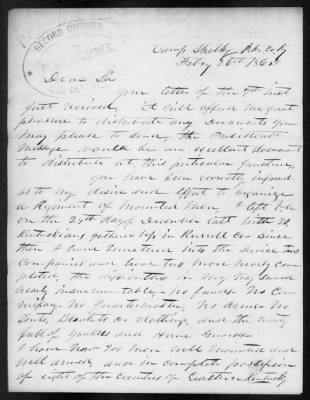 RECORD DIVISION
WAR DEP
Camp Shelby Pike Co Ky
Febry 26th 186
Dear Sir
your letter of the 9th inst
just received, it will afford me great
pleasure to distribute any Documents you
may please to send, the Presidents
Message would be an excellent document
to distribute at this particular Juncture,
you have been correctly informed
as to my desire and effort to organize
a Regiment of Mounted Men, I left
on the 27th day of December last with 20
Kentuckians gathered up in Russell Co Since
then I have mustered into the Service two
Companies and have two more nearly com
pleted, the difficulties in my way seemed
nearly insurmountable, no funds No Com
missary No Quartermaster, No Arms No
Tents, Blankets or clothing, and the county
full of yankees and Home Guards
I have now 200 men well mounted and
well armed, and in complete possession
of eight of the Counties of Eastern Kentucky